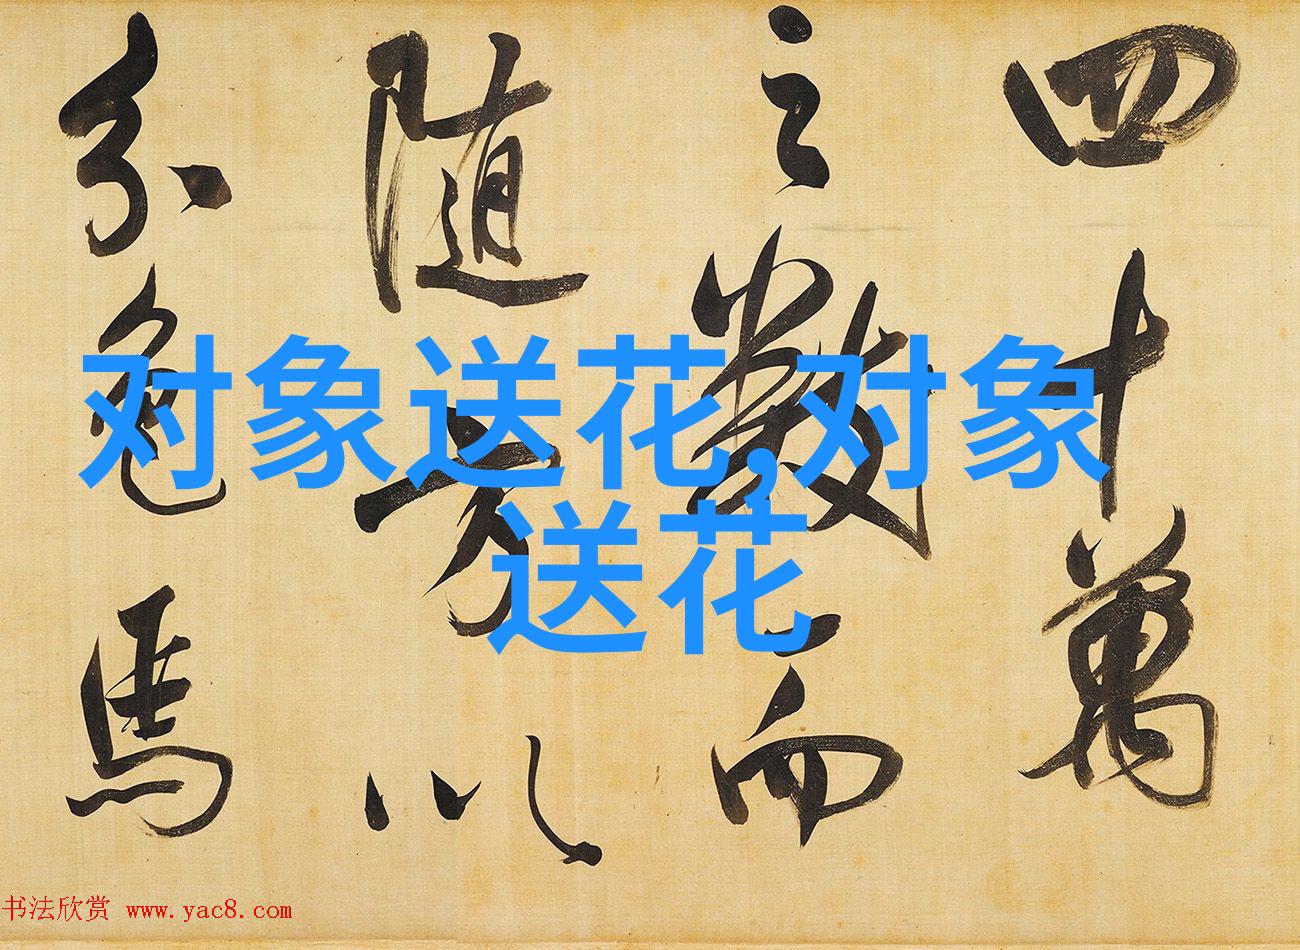 四十萬
之數而
隨方以
分色焉
对象送花,对象
送花
书法欣赏 www.yac8.com